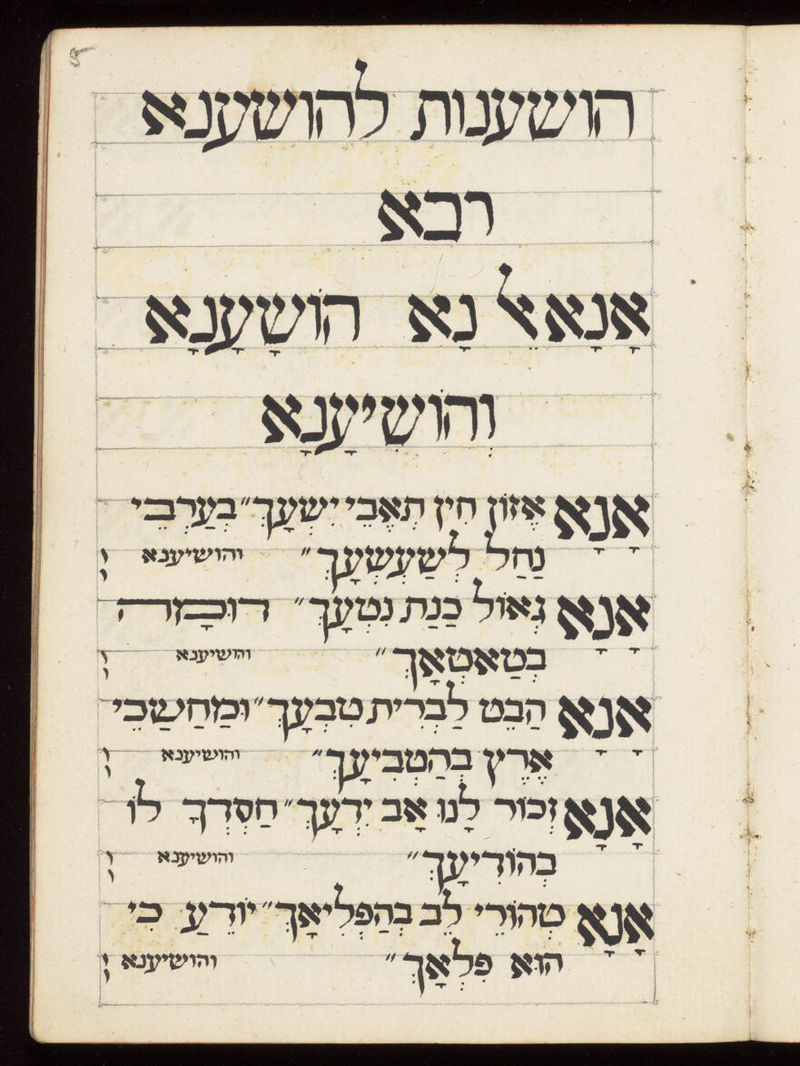 הושענות להושענא
רבא
אָנָאאֵל נָא הוֹשָׁעָנָא
וְהוֹשִׁיעָנָא
אָנָא אֱזוֹן חִין תְּאֵבֵי יִשְׁעָךְ״ בְּעַרְבֵי
נַחַל לְשַׁעְשְׁעָךְ״ והושיענא
אָנָא גְּאוֹל כַּנַּת נִטְעָךְ״ דוּמָה
בְּטַאטְאָךְ״ והושיענא
אָנָא הַבֵּט לַבְּרִית טִבְעָךְ״ וּמַחֲשַׁכֵּי
אֶרֶץ בְּהַטְבִּיעָךְ״ והושיענא
אָנָא זְכוֹר לָנוּ אָב יְדָעָךְ״ חַסְדְּךָ לוֹ
בְּהוֹדִיעָךְ״ והושיענא
אָנָא טְהוֹרֵי לֵב בְּהַפְלִיאָךְ״ יוֹדֵעַ כִּי
הוּא פִלְאָךְ״ והושיענא